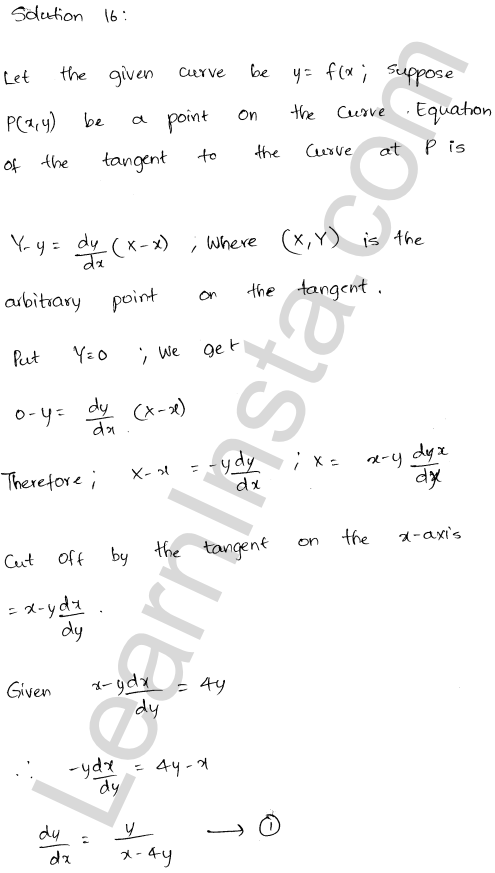 Solution 16:
Let the given curve be y= f(x ; suppose
P(x,y) be a point on the curve. Equation
of the tangent to the curve at P is
Y-y = dy/dx (X-x) ; where (X,Y) is the
arbitrary point on the tangent.
Put Y=0 ; we get
0-y = dy/dx (X-x)
Therefore; X-x = -y dy/dx ; X = x-y
Cut off by the tangent on the x-axis
= x-y dx/dy .
Given x-y dx/dy = 4y
∴ -y dx/dy = 4y-x
dy/dx = y/x-4y → ①
LearnInsta.com